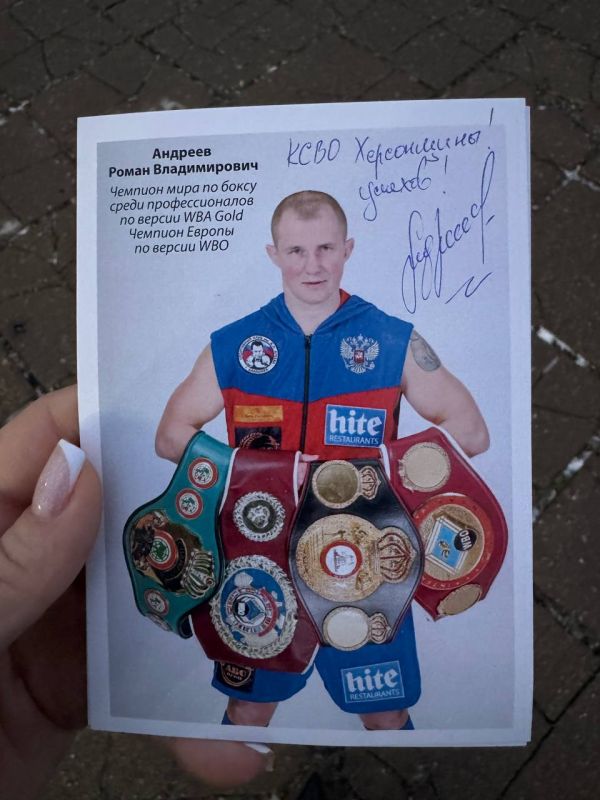 Андреев
Роман Владимирович
Чемпион мира по боксу
среди профессионалов
по версии WBA Gold
Чемпион Европы
по версии WBO
КСВО Херсонщины!
успехов!
hite
RESTAURANTS
WBO
hite
RESTAURANTS